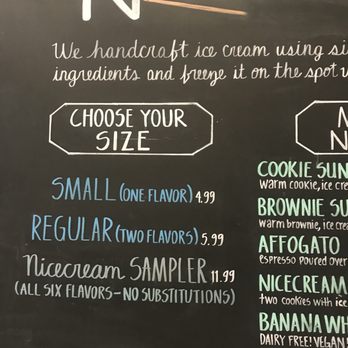 N
We handcraft ice cream using
ingredients and freeze it on the spot
CHOOSE YOUR
SIZE
SMALL (ONE FLAVOR) 4.99
REGULAR (TWO FLAVORS) 5.99
Nicecream SAMPLER 11.99
(ALL SIX FLAVORS-NO SUBSTITUTIONS)
COOKIE
warm cookie, ice
BROWNIE
warm brownie, ice
AFFOGATO
espresso poured over
NICECREAM
two cookies with
BANANA
DAIRY FREE! VEGAN!